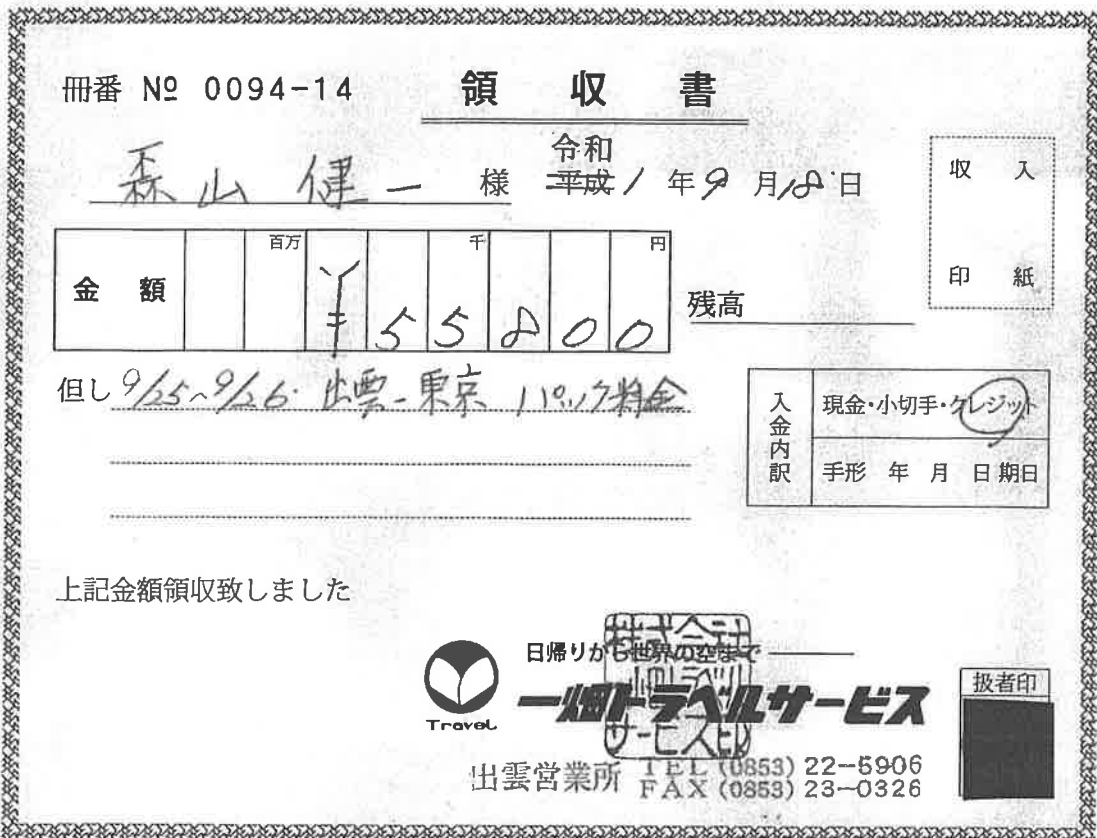 冊番 № 0094-14
領収書
森山 健一 様
令和
平成 1 年 9 月 18 日
収入
印紙
金額 百万 千 円
¥55800
残高
但し 9/25~9/26. 出雲-東京 パック料金
入金内訳
現金・小切手・クレジット
手形 年 月 日期日
上記金額領収致しました
日帰りから世界の空まで
一畑トラベルサービス
Travel
株式会社
一畑トラベル
サービス印
扱者印
出雲営業所 TEL (0853) 22-5906
FAX (0853) 23-0326